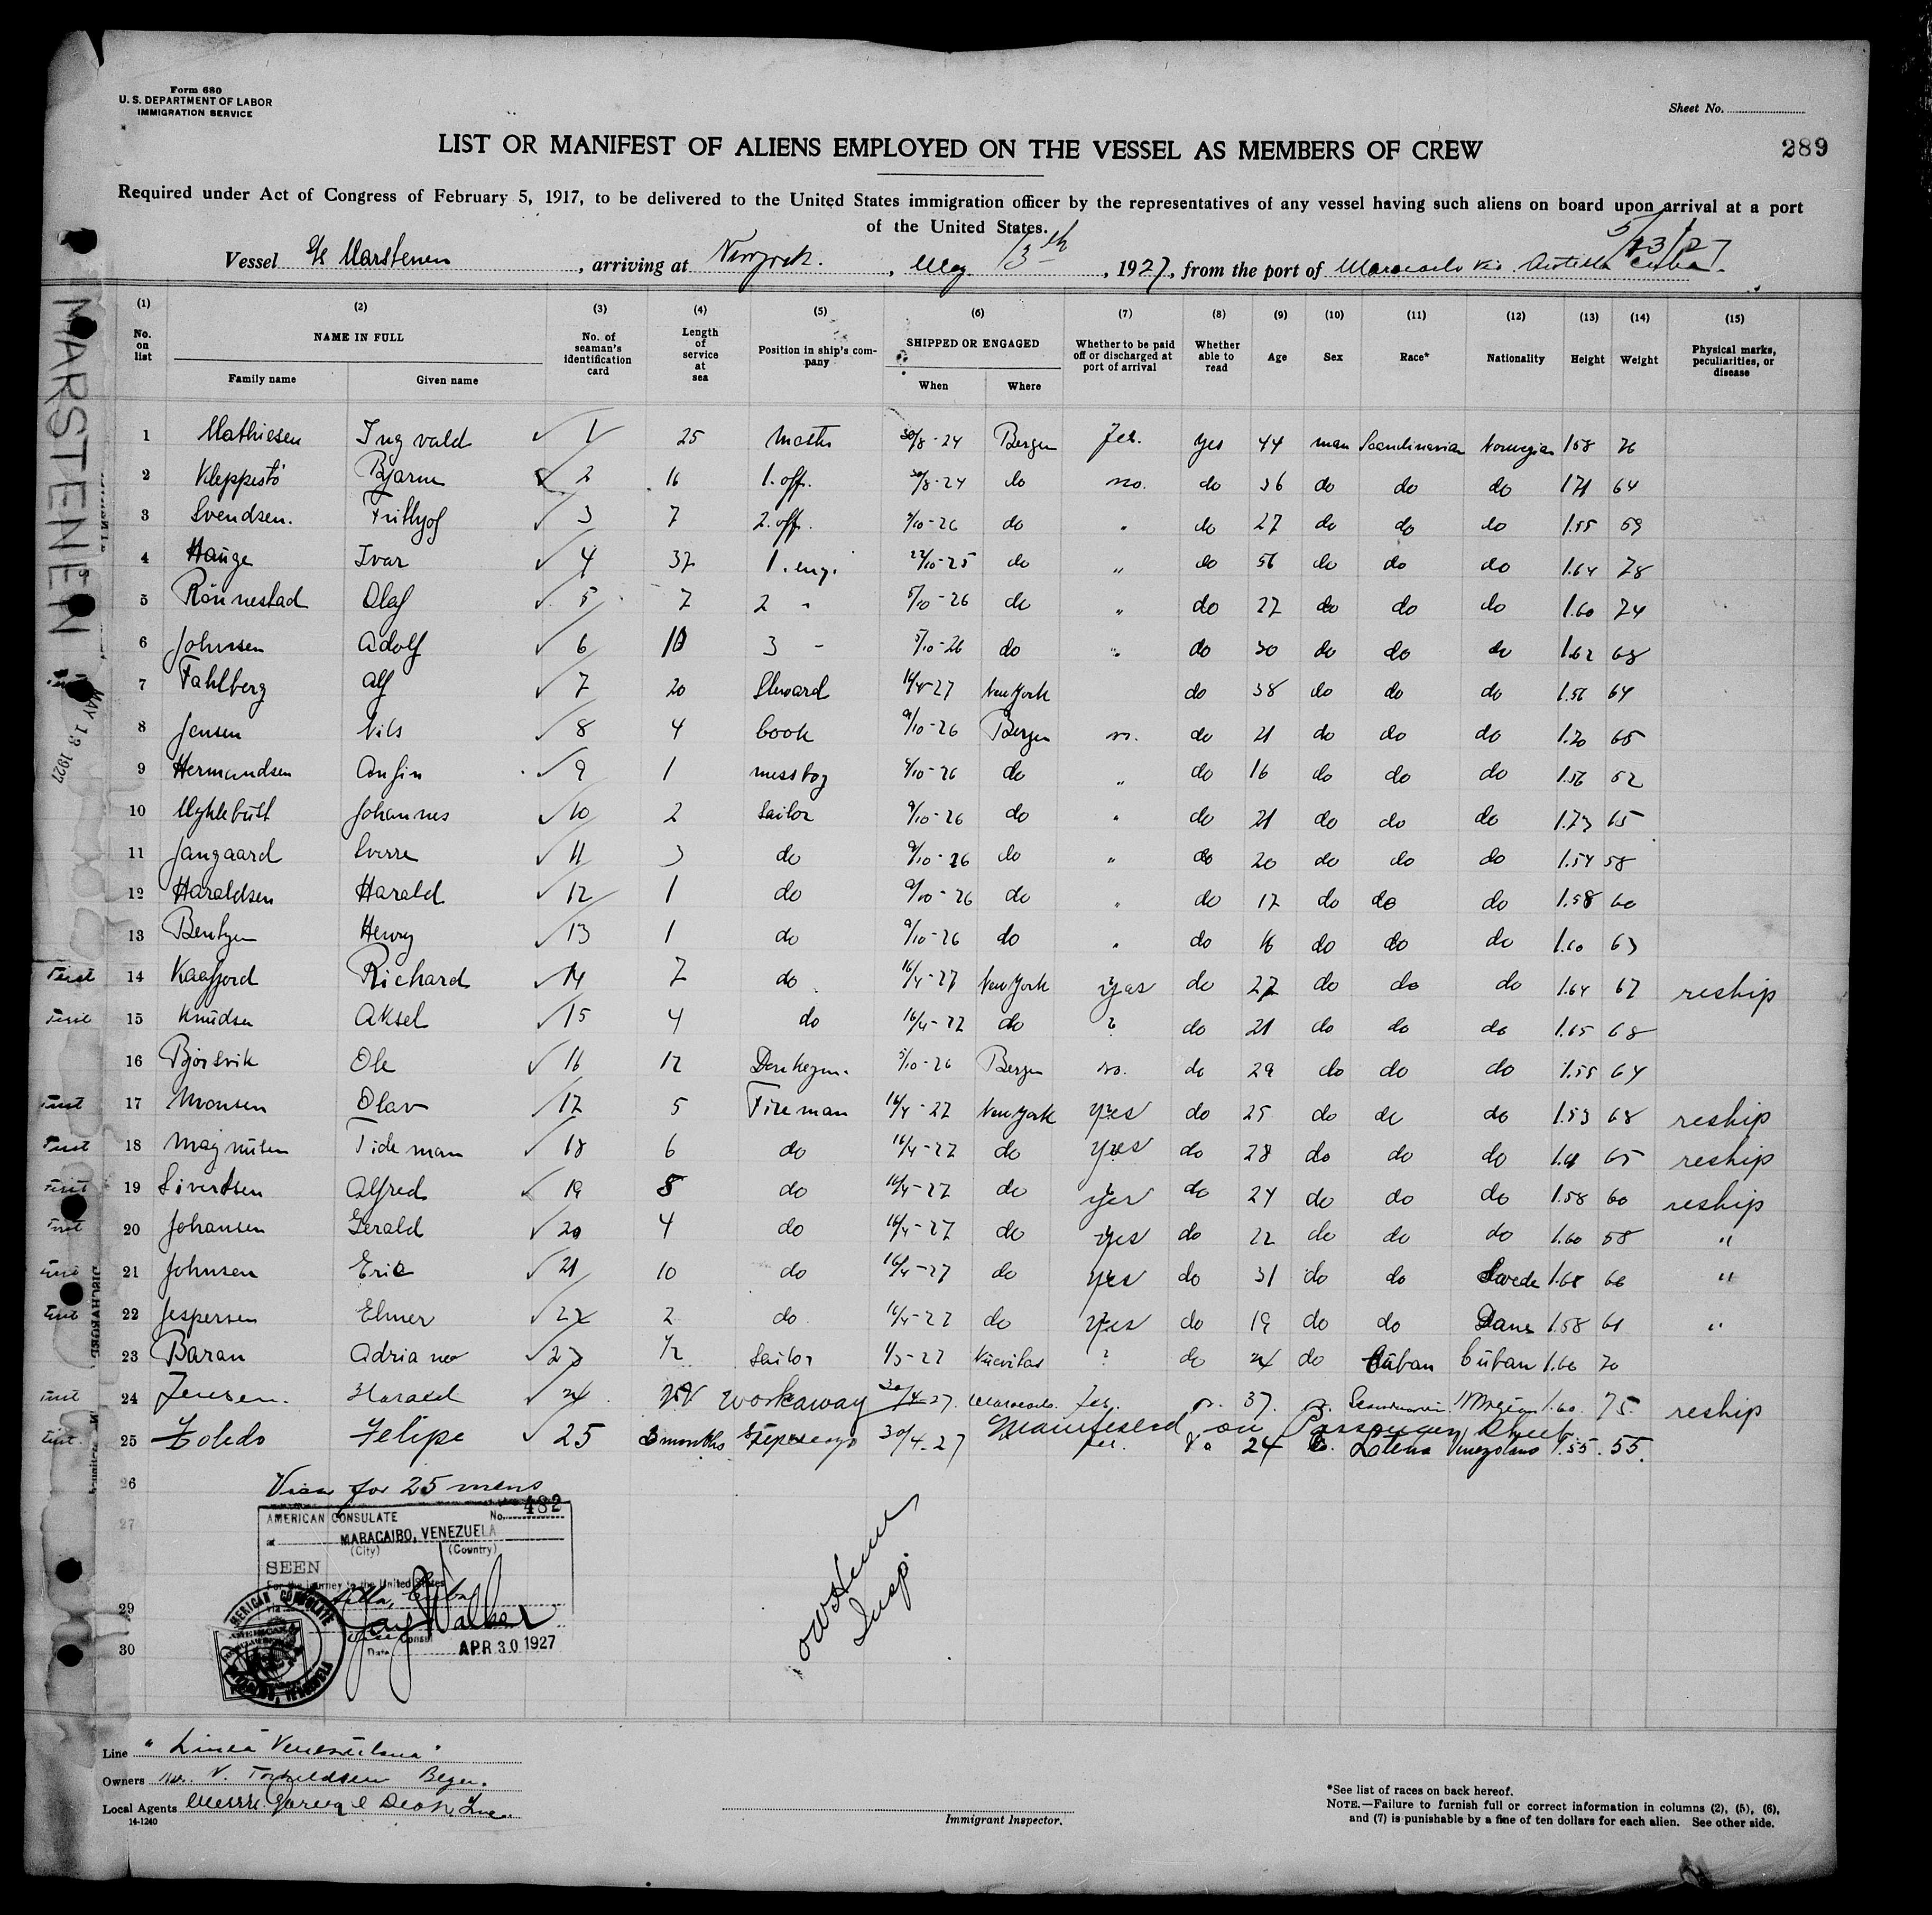 Form 680
U. S. DEPARTMENT OF LABOR
IMMIGRATION SERVICE
Sheet No.
289
LIST OR MANIFEST OF ALIENS EMPLOYED ON THE VESSEL AS MEMBERS OF CREW
Required under Act of Congress of February 5, 1917, to be delivered to the United States immigration officer by the representatives of any vessel having such aliens on board upon arrival at a port
of the United States.
5/13/27
Vessel Marstenen, arriving at New York., May 13th, 1927, from the port of Maracaibo via Antilla Cuba.
(1) (2) (3) (4) (5) (6) (7) (8) (9) (10) (11) (12) (13) (14) (15)
No. on list NAME IN FULL No. of seaman's identification card Length of service at sea Position in ship's company SHIPPED OR ENGAGED Whether to be paid off or discharged at port of arrival Whether able to read Age Sex Race* Nationality Height Weight Physical marks, peculiarities, or disease
Family name Given name When Where
1 Mathiesen Ingvald 1 25 30/8-24 Bergen yes. yes 44 man Scandinavian Norwegian 158 76
2 Kleppestö Bjarne 2 16 1. off. 30/8-24 do no. do 36 do do do 171 64
3 Svendsen. Frithjof 3 7 2. off. 9/10-26 do " do 27 do do do 1.55 59
4 Hauge Ivar 4 37 1. eng. 22/10-25 do " do 56 do do do 1.64 78
5 Rönnestad Olaf 5 7 2 " 5/10-26 do " do 27 do do do 1.60 74
6 Johnsen Adolf 6 10 3 - 5/10-26 do " do 30 do do do 1.62 68
7 Fahlberg Alf 7 20 Steward 16/4-27 New York do 38 do do do 1.56 64
8 Jensen Nils 8 4 Cook 9/10-26 Bergen no. do 21 do do do 1.70 65
9 Hermundsen Anfin 9 1 messboy 9/10-26 do " do 16 do do do 1.56 52
10 Myklebust Johannes 10 2 Sailor 9/10-26 do " do 21 do do do 1.73 65
11 Jangaard Sverre 11 3 do 9/10-26 do " do 20 do do do 1.54 58
12 Haraldsen Harald 12 1 do 9/10-26 do " do 17 do do do 1.58 60
13 Bentzen Henry 13 1 do 9/10-26 do " do 16 do do do 1.60 63
14 Kaafjord Richard 14 7 do 16/4-27 New York yes do 27 do do do 1.64 67 reship
15 Knudsen Aksel 15 4 do 16/4-27 do ? do 21 do do do 1.65 68
16 Bjorsvik Ole 16 12 5/10-26 Bergen no. do 29 do do do 1.55 64
17 Monsen Olav 17 5 Fireman 16/4-27 New York yes do 25 do do do 1.53 68 reship
18 Magnusen Tideman 18 6 do 16/4-27 do yes do 28 do do do 65 reship
19 Sivertsen Alfred 19 8 do 16/4-27 do yes do 24 do do do 1.58 60 reship
20 Johansen Gerald 20 4 do 16/4-27 do yes do 22 do do do 1.60 58 "
21 Johnsen Eric 21 10 do 16/4-27 do yes do 31 do do Swede 1.68 66 "
22 Jespersen Elmer 22 2 do 16/4-27 do yes do 19 do do Dane 1.58 61 "
23 Baran Adriano 23 1/2 Sailor 1/5-27 Nuevitas ? do 24 do Cuban Cuban 1.60 70
24 Jensen. Harald 24 workaway 30/4-27. Maracaibo. yes. 37. Scandinavian Norwegian 1.60. 75. reship
Manifested on Passenger Sheet
25 Toledo Felipe 25 3 months 30/4.27 yes. 24 do. Latina Venezolano 1.55. 55.
26 Visa for 25 mens
27
29
30
AMERICAN CONSULATE No. 482
at MARACAIBO, VENEZUELA
(City) (Country)
SEEN
For the journey to the United States
via Antilla, Cuba
Jay Walker
Consul
Date APR 30 1927
AMERICAN CONSULATE
Insp.
MARSTENEN
MAY 13 1927
Line "Linea Venezolana"
Owners
Local Agents
14-1240
Immigrant Inspector.
*See list of races on back hereof.
NOTE.—Failure to furnish full or correct information in columns (2), (5), (6),
and (7) is punishable by a fine of ten dollars for each alien. See other side.